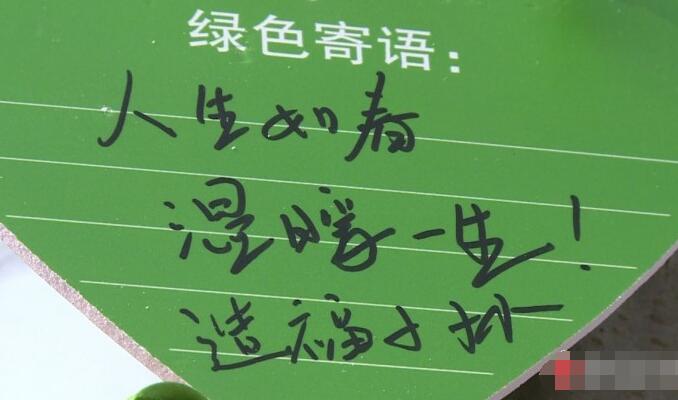 绿色寄语:
人生如春
温暖一生!
造福小